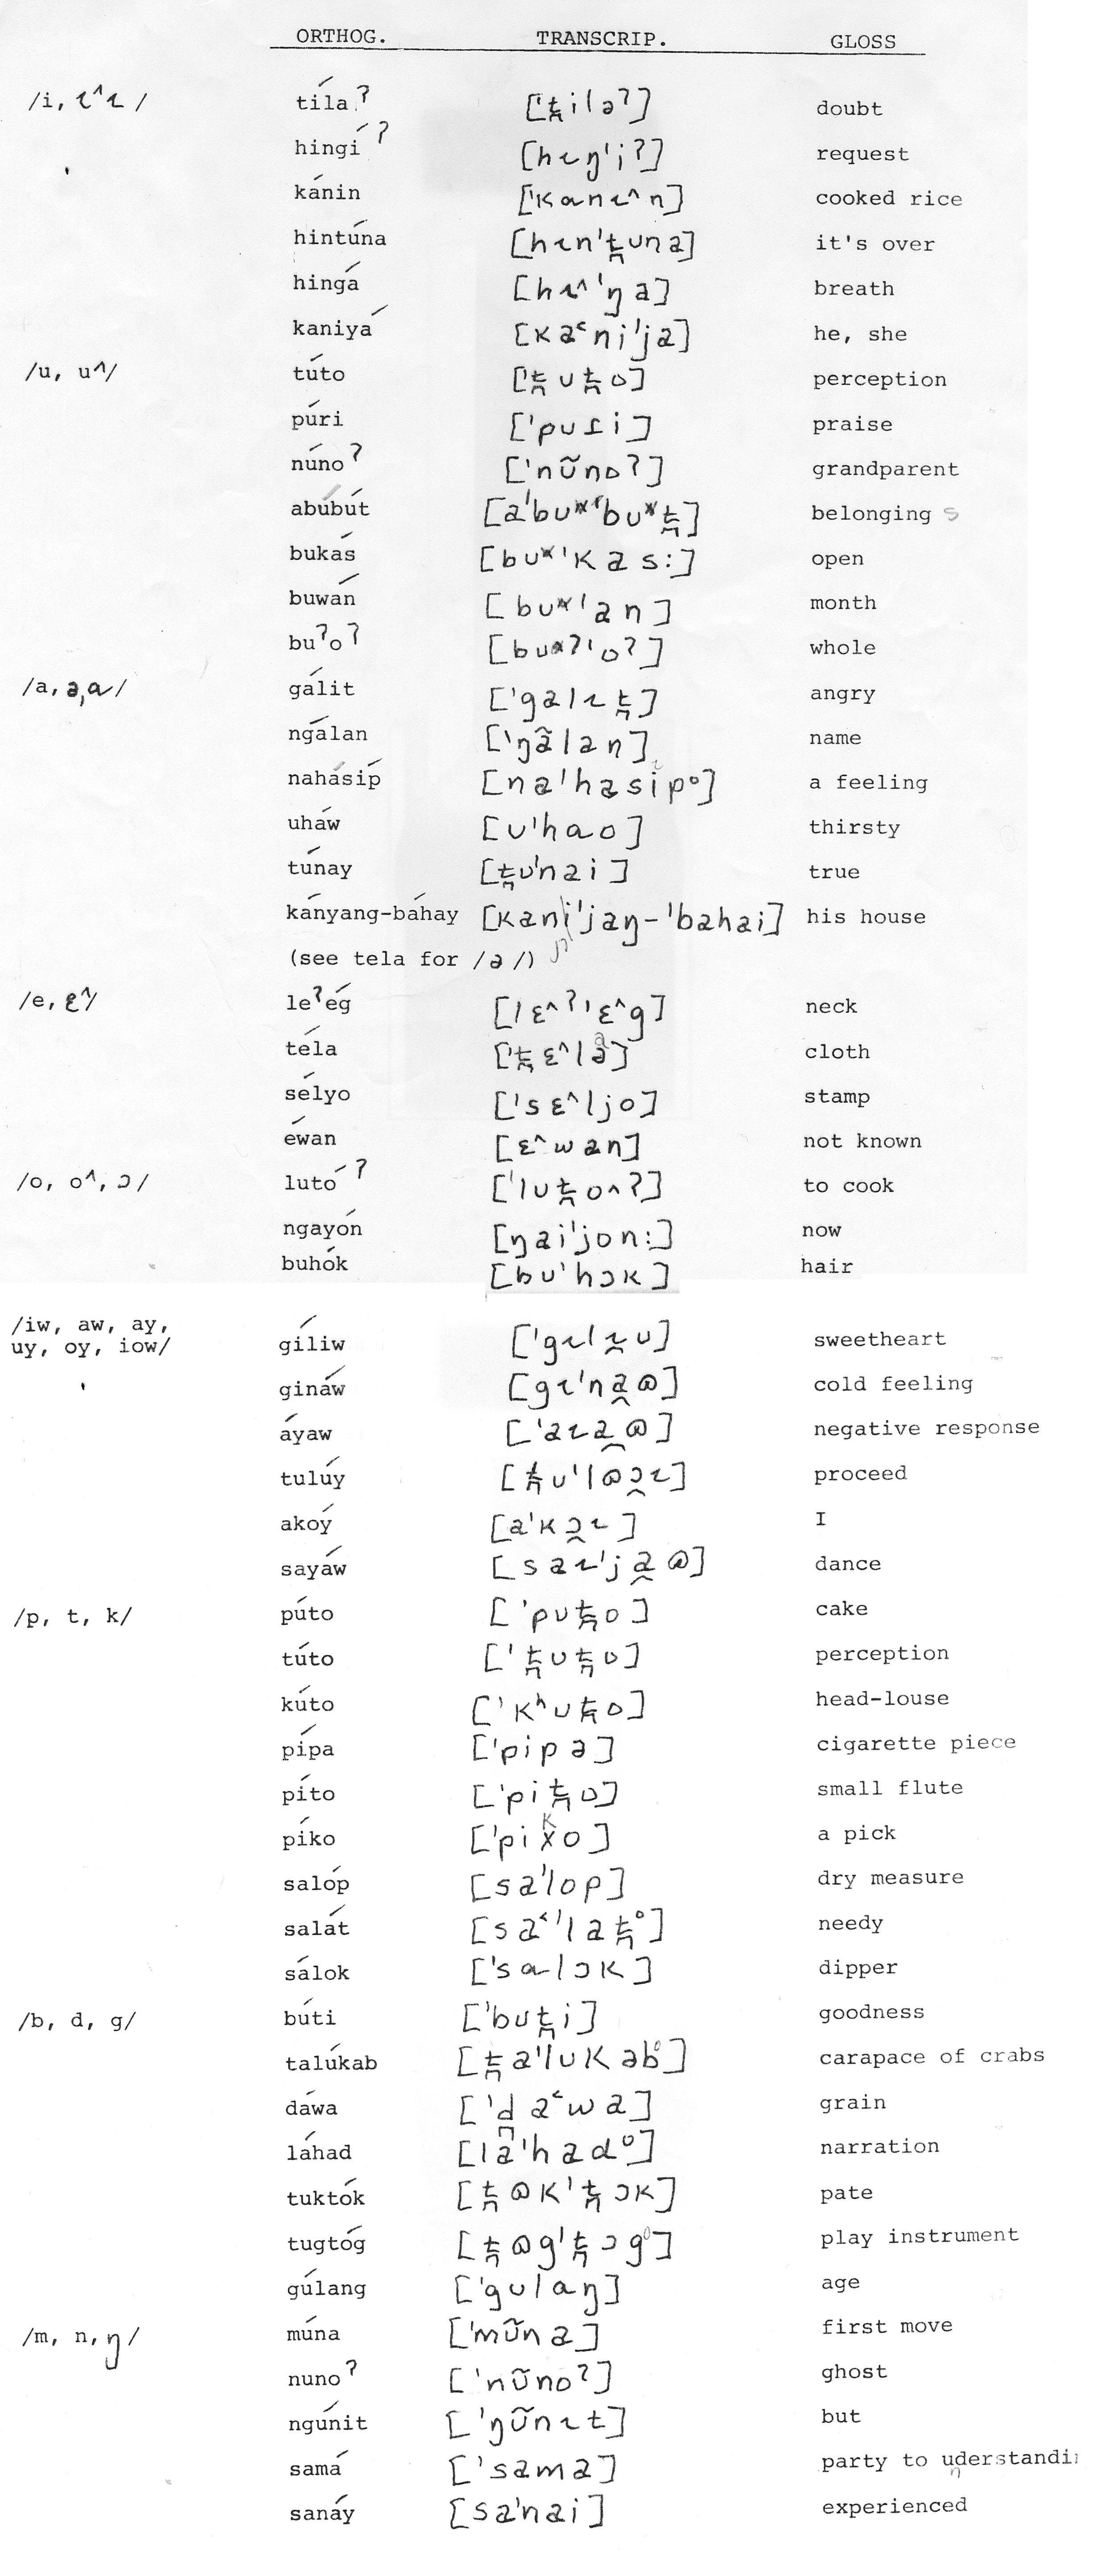 ORTHOG. TRANSCRIP. GLOSS
/i, ɩ^ɩ / tílaʔ ['t̪iləʔ] doubt
hingíʔ [hɩŋ'iʔ] request
kánin ['kɑnɩ^n] cooked rice
hintúna [hɩn't̪una] it's over
hingá [hɩ^'ŋa] breath
kaniyá [ka˂ni'ja] he, she
/u, u^/ túto ['t̪ut̪o] perception
púri ['puɾi] praise
núnoʔ ['nũnoʔ] grandparent
abúbút belonging s
bukás open
buwán month
buʔoʔ whole
/a, ə, ɑ/ gálit ['galɩt̪] angry
ngálan ['ŋãlan] name
nahásíp a feeling
uháw [u'hɑo] thirsty
túnay [t̪u'nai] true
kányang-báhay his house
(see tela for /ə/)
/e, ɛ^/ leʔég [lɛ^ʔ'ɛ^g] neck
téla cloth
sélyo ['sɛ^ljo] stamp
éwan [ɛ^wan] not known
/o, o^, ɔ/ lutóʔ ['lut̪o^ʔ] to cook
ngayón [ŋai'jon:] now
buhók [bu'hɔk] hair
/iw, aw, ay,
uy, oy, iow/ gíliw ['gɩlɩ̯u] sweetheart
gináw [gɩ'na̯ɷ] cold feeling
áyaw ['aɩa̯ɷ] negative response
tulúy [t̪u'lɷɔ̯ɩ] proceed
akóy [a'kɔ̯ɩ] I
sayáw [saɩ'ja̯ɷ] dance
/p, t, k/ púto ['put̪o] cake
túto ['t̪ut̪o] perception
kúto ['kʰut̪o] head-louse
pípa ['pipə] cigarette piece
píto ['pit̪o] small flute
píko a pick
salóp [sa'lop] dry measure
salát [sa˂'lat̪°] needy
sálok ['sɑlɔk] dipper
/b, d, g/ búti ['but̪i] goodness
talúkab [t̪a'lukəb°] carapace of crabs
dáwa ['d̪a˂wa] grain
láhad [la'had°] narration
tuktók [t̪ɷk't̪ɔk] pate
tugtóg [t̪ɷg't̪ɔg°] play instrument
gúlang ['gulɑŋ] age
/m, n, ŋ/ múna ['mũna] first move
nunoʔ ['nũnoʔ] ghost
ngúnit ['ŋũnɩt] but
samá ['sama] party to uderstandi
n
sanáy [sa'nai] experienced